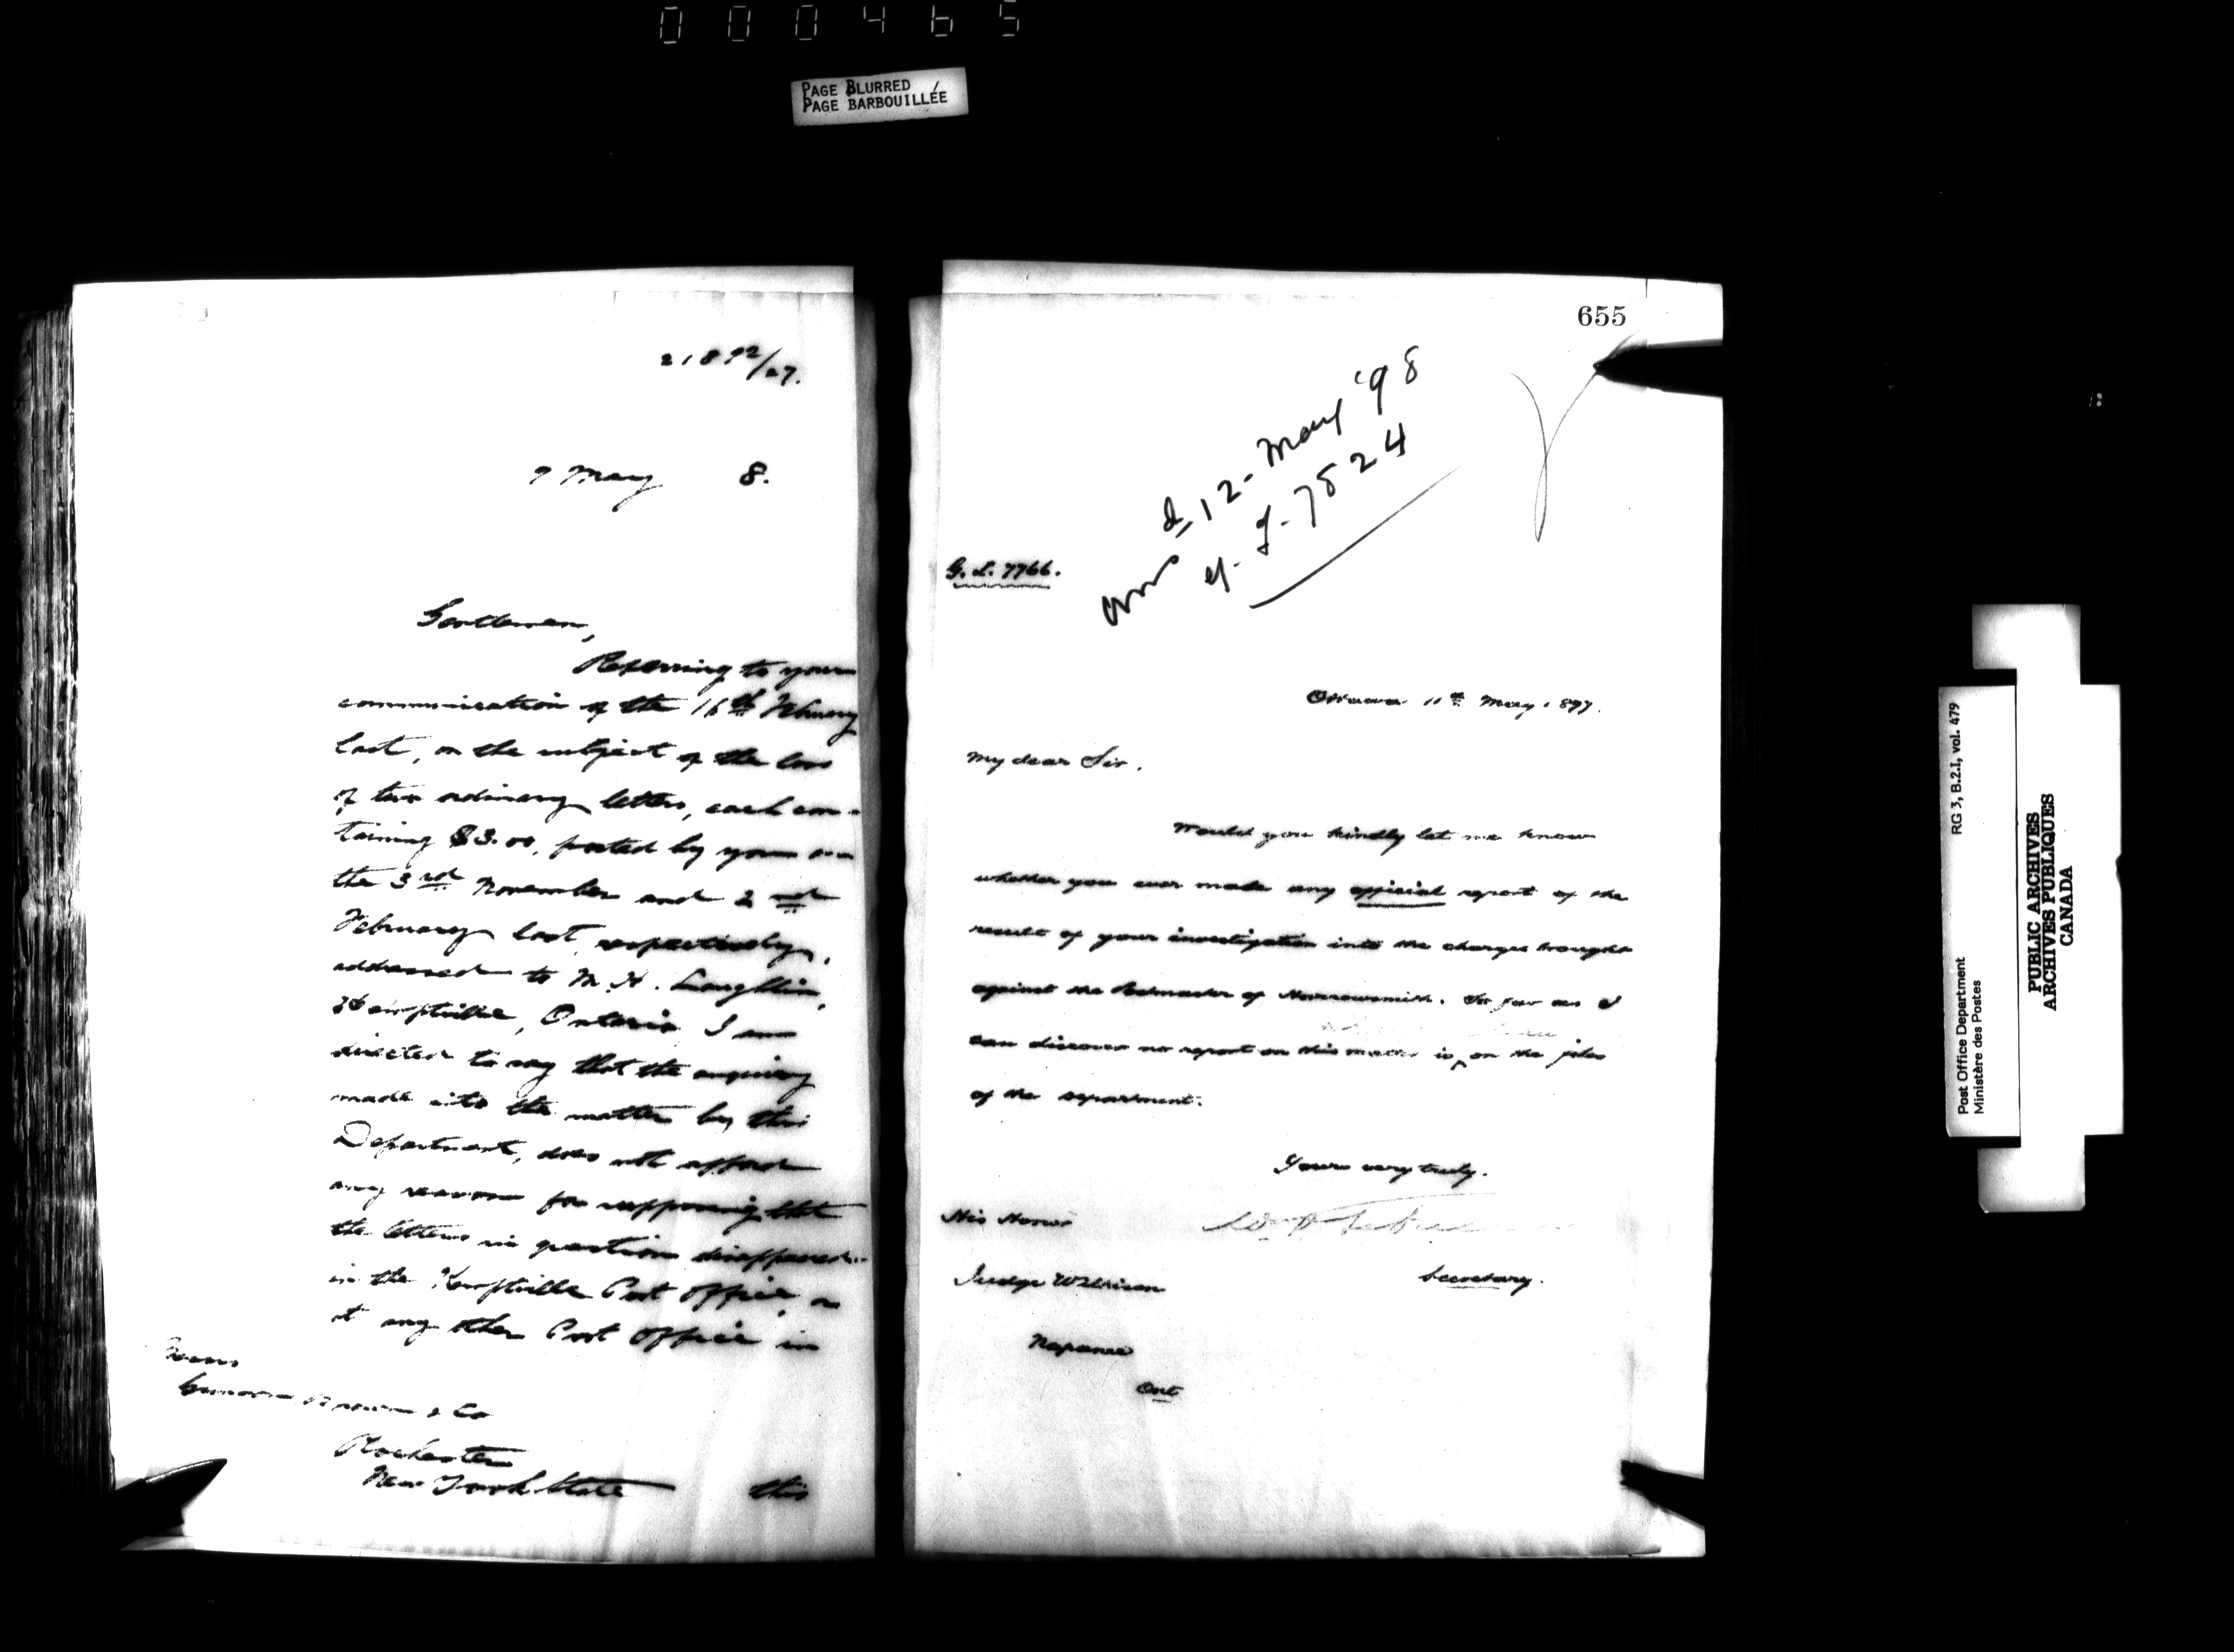 000465
PAGE BLURRED
PAGE BARBOUILLÉE
21892/27.
7 May 8.
Gentlemen,
Referring to your
communication of the 16th February
last, on the subject of the loss
of two ordinary letters, each con-
taining $3.00, posted by you on
the 3rd November and 2nd
February last, respectively,
addressed to M. H. Laughlin,
Kemptville, Ontario, I am
directed to say that the enquiry
made into the matter by this
Department, does not afford
any reason for supposing that
the letters in question disappeared
in the Kemptville Post Office, or
at any other Post Office in
Messrs
Brown & Co
Rochester
New York State
this
655
d 12 - May '98
7824
G. L. 7766.
Ottawa 11th May 1897.
My dear Sir.
Would you kindly let me know
whether you ever made any official report of the
result of your investigation into the charges brought
against the Postmaster of Harrowsmith. So far as I
can discover no report on this matter is on the files
of the department.
Yours very truly.
Secretary.
His Honor
Judge Wilkison
Napanee
Ont
Post Office Department
Ministère des Postes
RG 3, B.2.I, vol. 479
PUBLIC ARCHIVES
ARCHIVES PUBLIQUES
CANADA